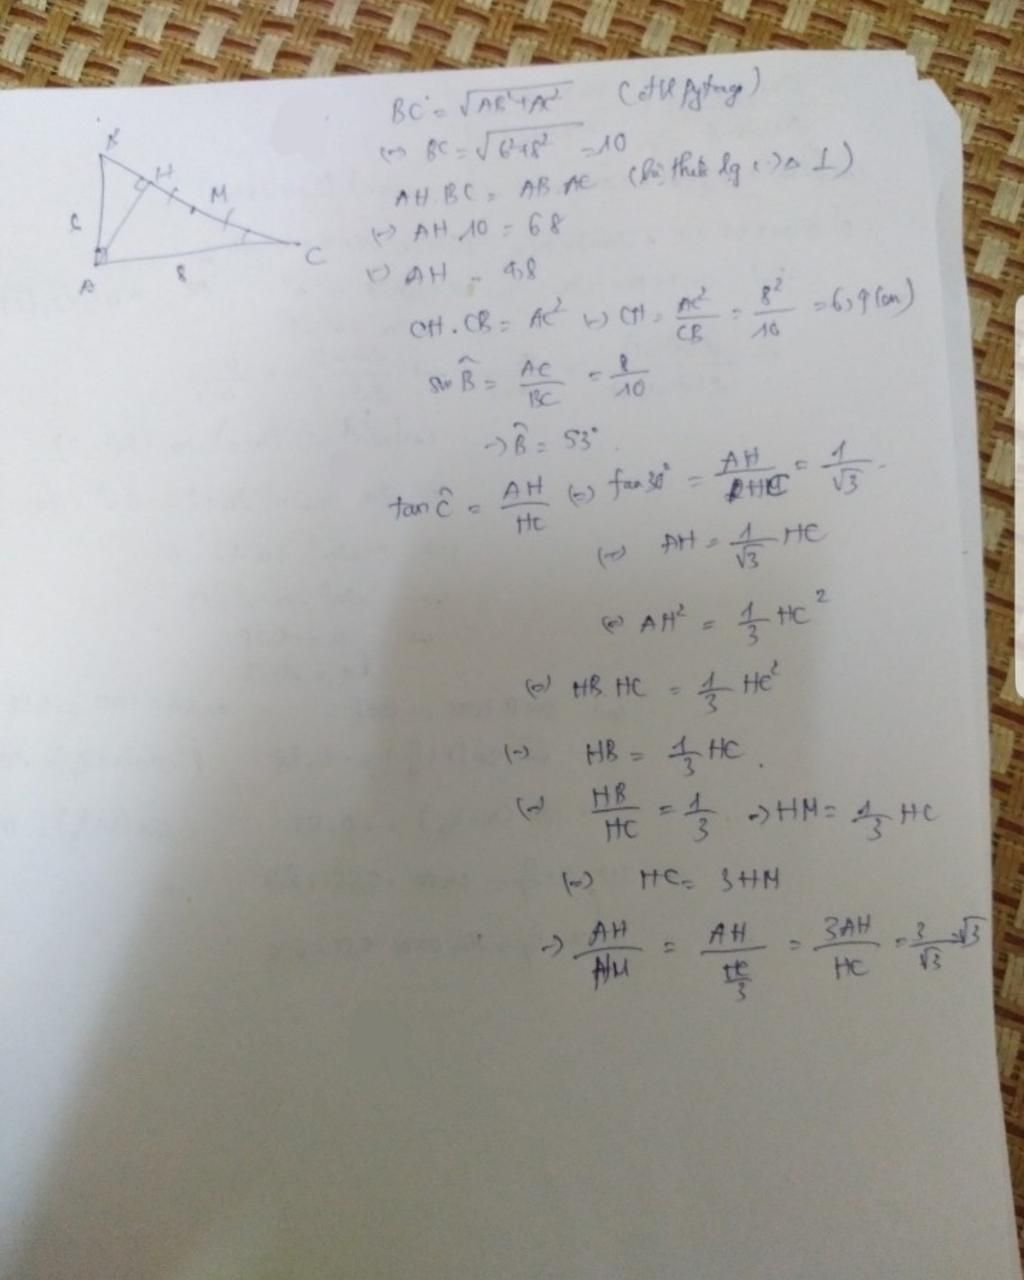 B
H
M
6
C
A
8
BC = √AB²+AC² (
(=) BC = √6²+8² = 10
AH.BC = AB.AC ( Δ ⊥)
(=) AH.10 = 6.8
(=) AH = 4,8
CH.CB = AC² (=) CH = AC²/CB = 8²/10 = 6,4 (cm)
sin B̂ = AC/BC = 8/10
→ B̂ = 53°.
tan Ĉ = AH/HC (=) tan 30° = AH/HC = 1/√3.
(=) AH = 1/√3 HC
(=) AH² = 1/3 HC²
(=) HB.HC = 1/3 HC²
(=) HB = 1/3 HC.
(=) HB/HC = 1/3 → HM = 1/3 HC
(=) HC = 3HM
→ AH/HM = AH/(HC/3) = 3AH/HC = 3/√3 = √3